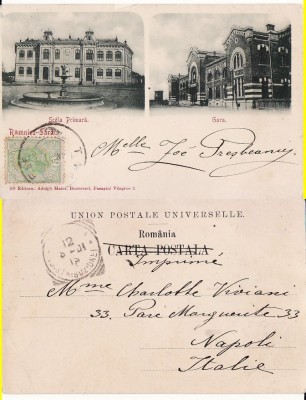 Scóla Primară.
Gara.
Râmnicu-Sărat.
Melle Zoé
Editura: Adolph Maier, Bucuresci, Pasagiul Vilagros 2.
UNION POSTALE UNIVERSELLE.
România
CARTA POSTALA
Imprimé
12
Mme Charlotte Viviani
33. Parc Marguerite 33
Napoli
Italie